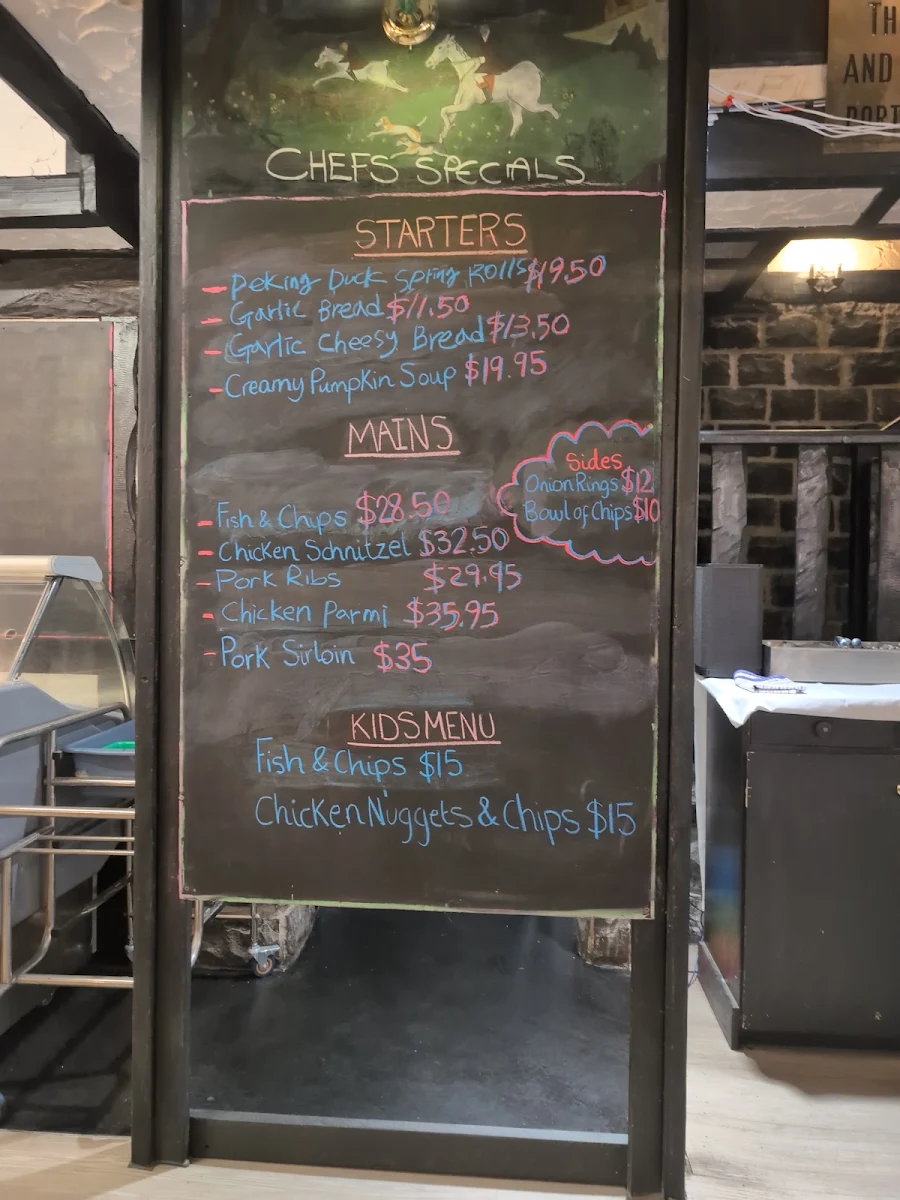 CHEFS SPECIALS
STARTERS
- Peking Duck Spring Rolls $19.50
- Garlic Bread $11.50
- Garlic Cheesy Bread $13.50
- Creamy Pumpkin Soup $19.95
MAINS
Sides
Onion Rings $12
Bowl of Chips $10
- Fish & Chips $28.50
- Chicken Schnitzel $32.50
- Pork Ribs $29.95
- Chicken Parmi $35.95
- Pork Sirloin $35
KIDS MENU
Fish & Chips $15
Chicken Nuggets & Chips $15
TH
AND
PORT